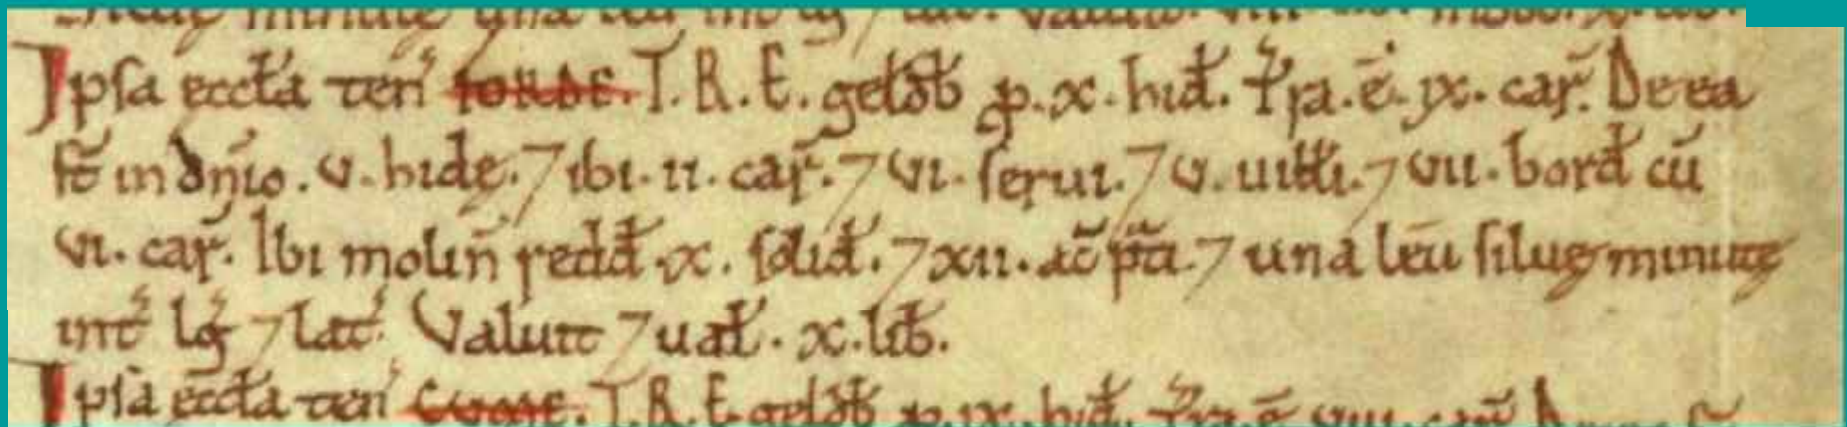 Ipsa eccła ten̄ FORDE. T.R.E. geldƀ ꝓ.x.hiđ. Tr̄a.ē.ix.car̄. De ea
st̄ in dn̄io.v.hidę.⁊ ibi.ii.car̄.⁊ vi.serui.⁊ v.uiłłi.⁊ vii.borđ cū
vi.car̄. Ibi molin̄ redđ.x.soliđ.⁊ xii.ac̄ p̄ti.⁊ una leū siluę minutę
int̄ lḡ ⁊ lat̄. Valuit ⁊ uał.x.liƀ.
Ipsa eccła ten̄ CUME. T.R.E. geldƀ ꝓ.ix.hiđ. Tr̄a.ē viii.car̄